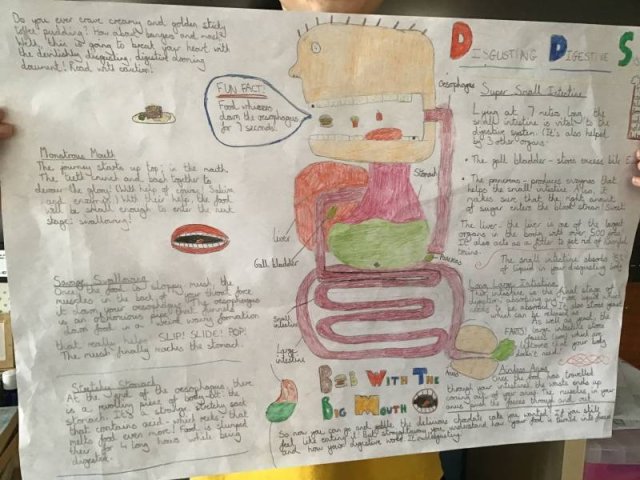 Do you ever crave creamy and golden sticky
toffee pudding? How about bangers and mash?
Well, this is going to break your heart with
the disgusting, digestist dooming
document! Read with caution!
DISGUSTING DIGESTIVE
FUN FACT:
Food whizzes
down the oesophagus
for 7 seconds!
Oesophagus
Super Small Intestine
Lying at 7 metres long, the
small intestine is vital to the
digesting system. (It's also helped
by 3 other organs:
• The gall bladder - stores excess bile
• The pancreas - produces enzymes that
helps the small intestine. Also, it
makes sure that the right amount
of sugar enters the blood stream! Sweet!
The liver - the liver is one of the largest
organs in the body with over 500 jobs!
It also acts as a filter to get rid of harmful
toxins.
The small intestine absorbs
of liquid in your disgusting body
Monstrous Mouth
The journey starts up top; in the mouth.
The teeth crunch and bash together to
devour the glory! (With help of saliva
and enzymes) With their help, the food
will be small enough to enter the next
stage: swallowing!
Stomach
Liver
Gall bladder
Pancreas
Small
intestine
Large
intestine
Savage Swallowing
Once the food is sloppy mush, the
muscles in the back of your throat force
it down your oesophagus. The oesophagus
is an obnoxious pipe that funnels
down food in a weird wormy formation
that really helps. SLIP! SLIDE! POP!
The mush finally reaches the stomach.
Stretchy Stomach
At the end of the oesophagus, there
is a revolting piece of body: the
stomach. It's a strange, stretchy sack
that contains acid - which helps
melts food even more! Food is plunged
there for 4 long hours while being
digested.
Long Large Intestine
The large intestine is the final stage of
digestion, absorbing any
to be absorbed. It also stores gases
which can be released as
FARTS! Large intestine stores
faeces which are
leftovers that your body
doesn't need.
Anus
Once the food has travelled
through your intestine, the waste ends up
coming out of your anus. The muscles in your
anus push the faeces through and out.
BOB WITH THE
BIG MOUTH
So now you can go and gobble the delicious chocolate cake you wanted. If you still
feel like eating it! But at least you understand how your food is turned into faeces
and how your digestive world is disgusting.